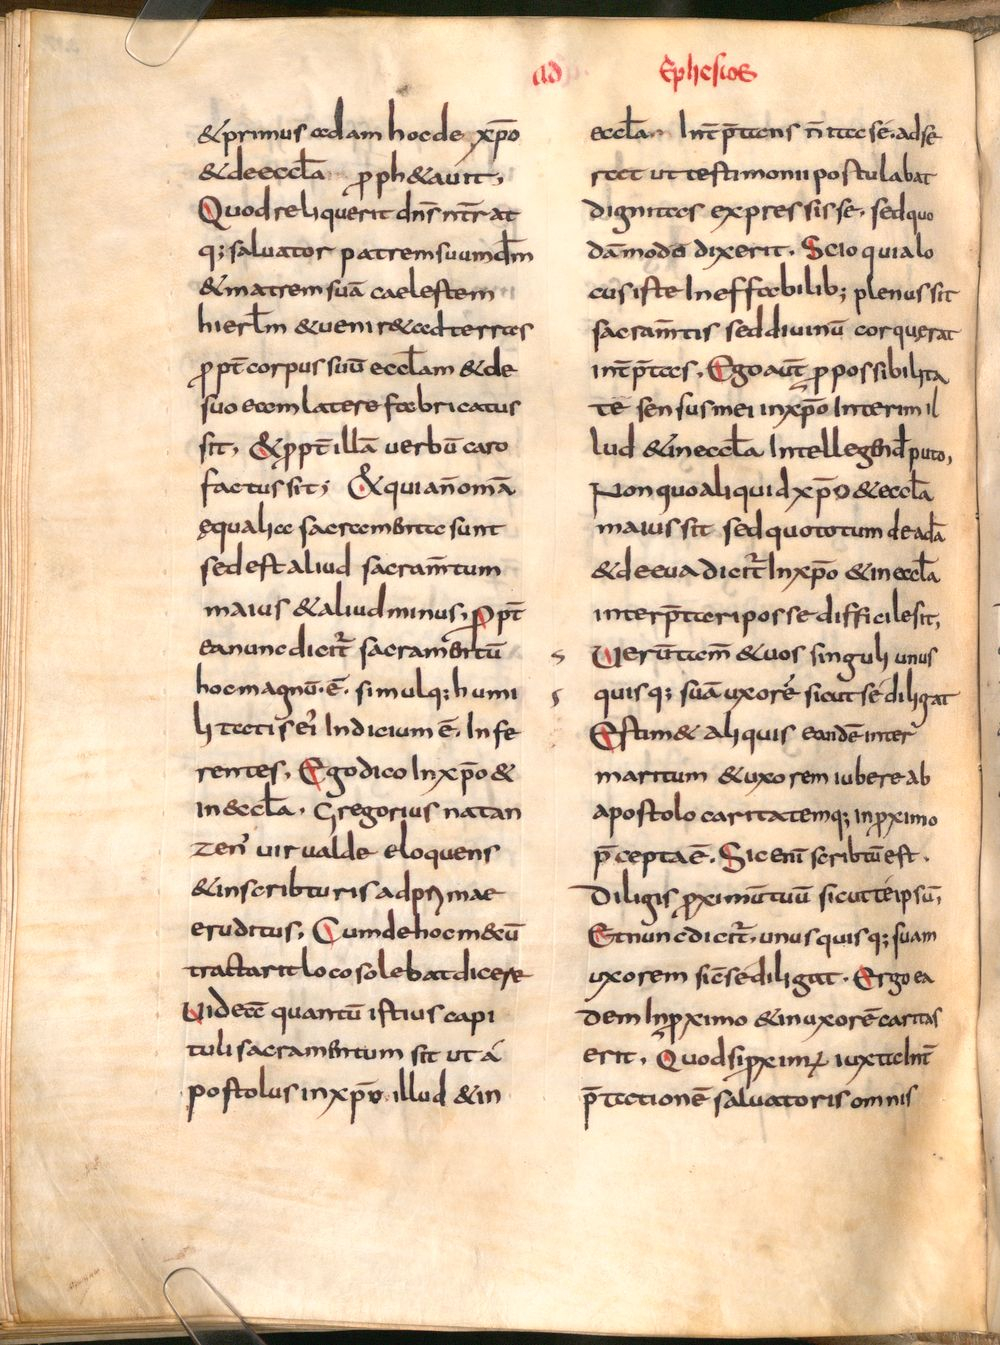 ad Ephesios
& primus adam hoc de xp̄o
& de eccl̄a p̱ph&auit,
Quod reliquerit dn̄s nt̄r at
q; saluator patrem suum dm̄
& matrem suā caelestem
hierl̄m & uenir& ad terras
p̱pt̄ corpus suū eccl̄am & de
suo eam latere fabricatus
sit, & p̱pt̄ illā uerbū caro
factus sit; & quia n̄ omā
ęqualia sacramenta sunt
sed est aliud sacram̄tum
maius & aliud minus, p̱pt̄
ea nunc dicit̄ sacramentū
hoc magnū·ē· simulq; humi
litatis ei' Indicium ē, Infe
rentes, Ego dico In xp̄o &
in &cl̄a, Gregorius natan
zen' uir ualde eloquens
& in scribturis adpmae
eruditus, Cum de hoc mecū
tractarit loco solebat dicere
Videte quantū istius capi
tuli sacramentum sit ut a
postolus in xp̄o illud & in
eccl̄am Int̄p̄tans n̄ ita sé adse
rat ut testimonii postulabat
dignitas expressisse, sed quo
dāmodo dixerit. Scio quia lo
cus iste Ineffabilib; plenus sit
sacram̄tis sed diuinū cor querat
int̄p̄tas, Ego aut̄ p̱ possibilita
te sensus mei in xp̄o Interim il
lud & in eccl̄a Intellegend̄ puto,
Non quo aliquid xp̄o & eccl̄a
maius sit sed quo totum de adā
& de eua dicit̄ In xp̄o & in eccl̄a
interp̄tari posse difficile sit,
Verūtam̄ & uos singuli unus
quisq; suā uxorē sicut sé diligat
Estim& aliquis eandē inter
maritum & uxorem iubere ab
apostolo caritatemq; in p̱ximo
p̄cepta ē. Sic enī scribtū est.
Diliges p̱ximū tuū sicut te ipsū,
Et nunc dicit̄, unusquisq; suam
uxorem sic sé diligat. Ergo ea
dem In p̱ximo & in uxorē caritas
erit, Quod si p̱xim' iuxta Int̄
p̄tationē saluatoris omnis